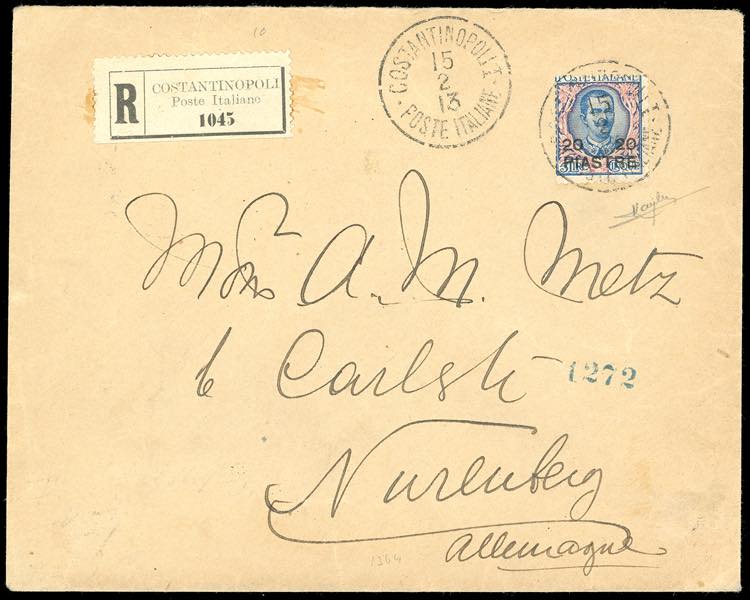 10
R
COSTANTINOPOLI
Poste Italiane
1045
COSTANTINOPOLI
15
2
13
POSTE ITALIANE
POSTE ITALIANE
15
20 20
PIASTRE
A. M. Metz
6 Carlstr
1272
Nurenberg
Allemagne
1364